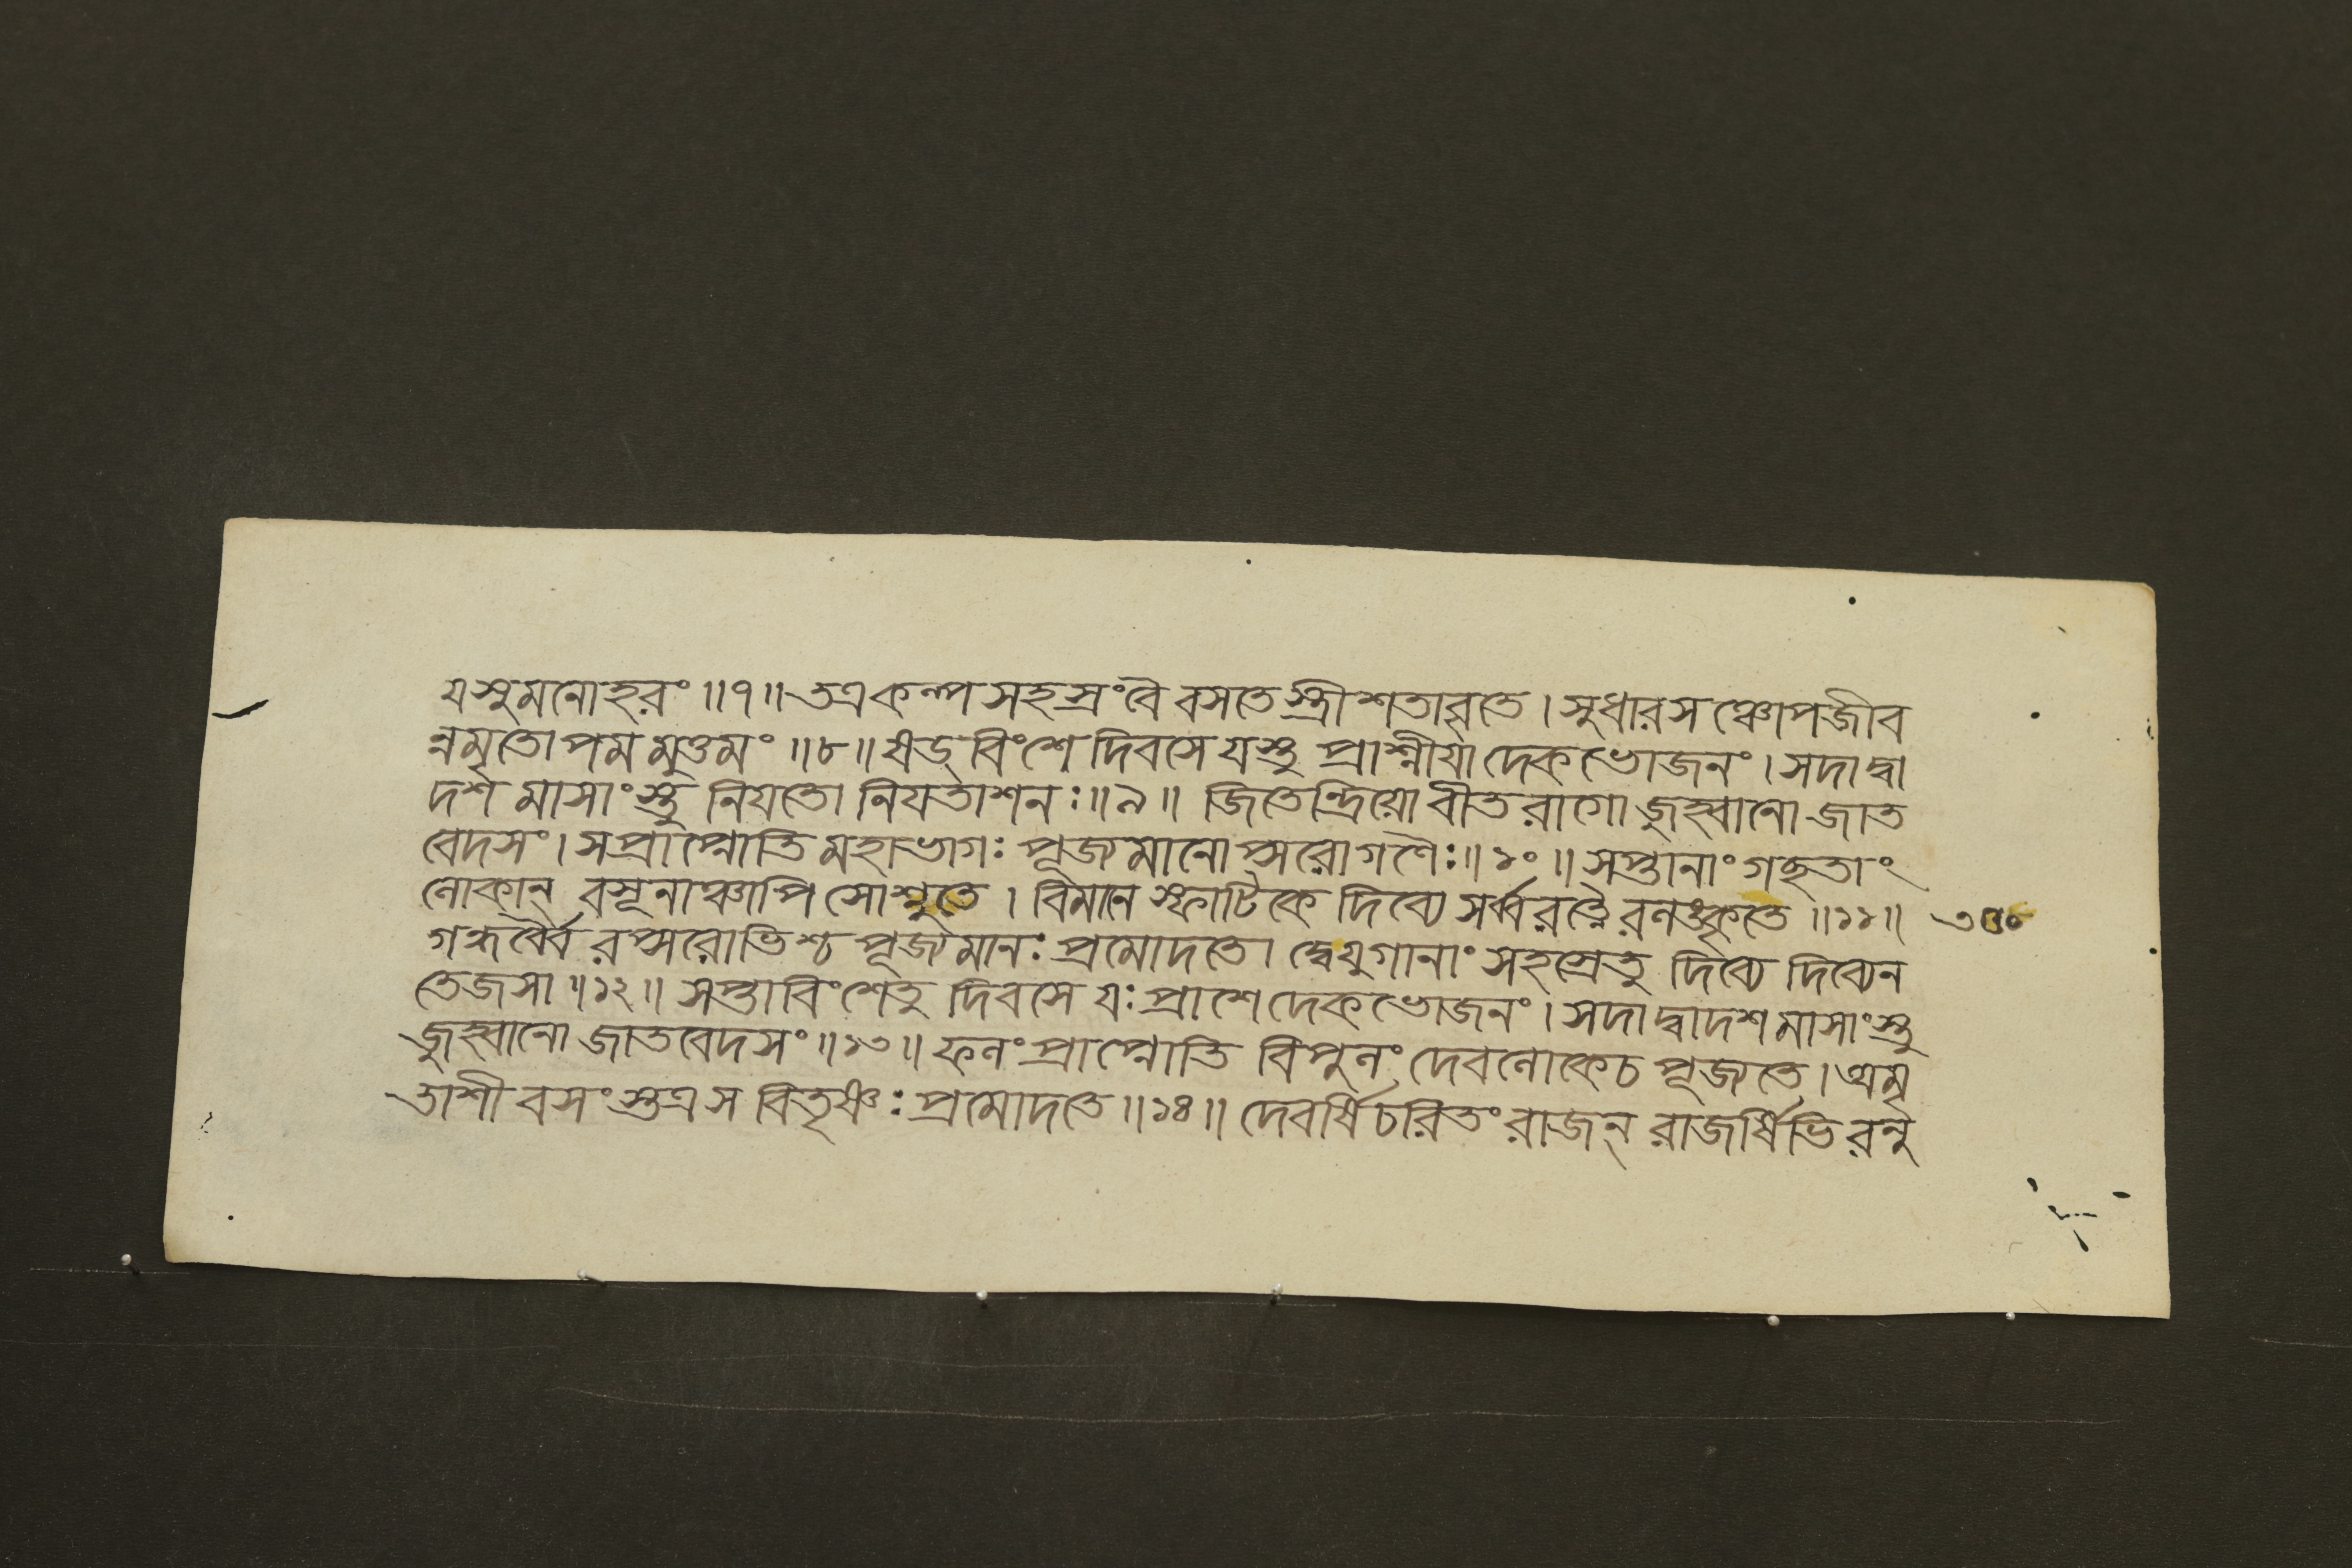 য সুমনোহরং ॥৭॥ তত্র কল্প সহস্রং বৈ বসতে স্ত্রী শতাবৃতে । সুধারস ঞ্চোপজীব
ন্নমৃতোপম মুত্তমং ॥৮॥ ষড্ বিংশে দিবসে যস্তু প্রাশ্নীযা দেক ভোজনং । সদা দ্বা
দশ মাসাংস্তু নিযতো নিযতাশনঃ ॥৯॥ জিতেন্দ্রিয়ো বীতরাগো জুহ্বানো জাত
বেদসং । স প্রাপ্নোতি মহাভাগঃ পূজ্যমানোপ্সরোগণৈঃ ॥১০॥ সপ্তানাং গহৃতাং
লোকান্ বসূনাঞ্চাপি সোশ্নুতে । বিমানে স্ফাটিকে দিব্যে সর্ব্বরত্নৈরলঙ্কৃতে ॥১১॥ ৩৫০
গন্ধর্ব্বৈ রপ্সরোভিশ্চ পূজ্যমানঃ প্রমোদতে । দ্বে যুগানাং সহস্রেতু দিব্যে দিব্যেন
তেজসা ॥১২॥ সপ্তাবিংশেতু দিবসে যঃ প্রাশেদেক ভোজনং । সদা দ্বাদশ মাসাংস্তু
জুহ্বানো জাতবেদসং ॥১৩॥ ফলং প্রাপ্নোতি বিপুলং দেবলোকেচ পূজ্যতে । অমৃ
তাশী বসংস্তত্র স বিতৃষ্ণঃ প্রমোদতে ॥১৪॥ দেবর্ষি চরিতং রাজন্ রাজর্ষিভি রনু